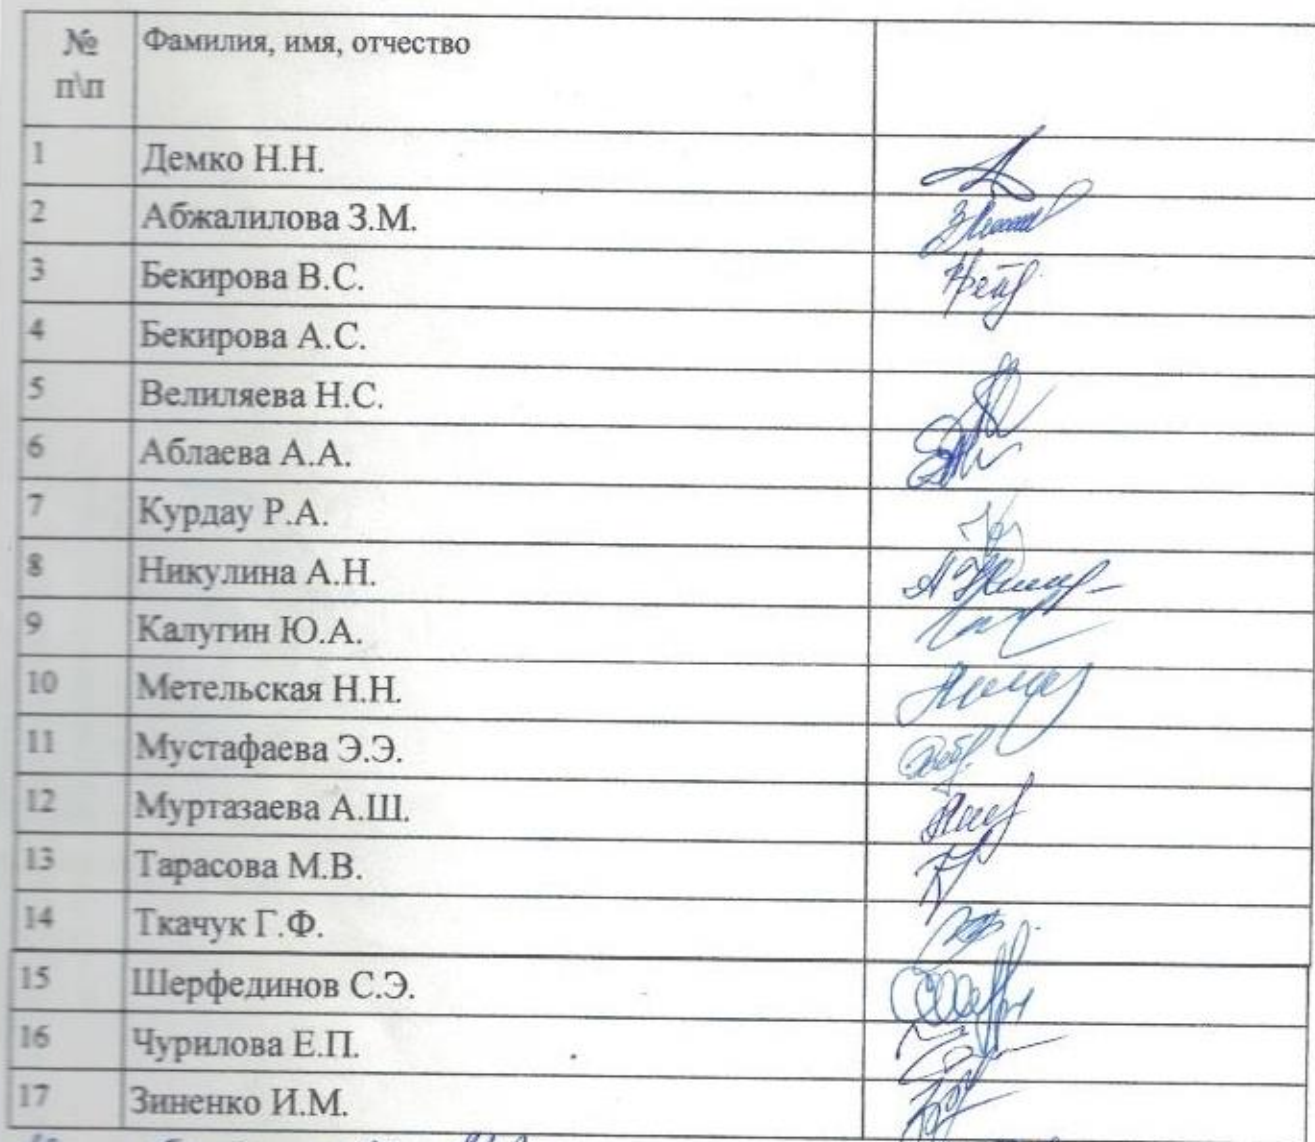 № п\п Фамилия, имя, отчество
1 Демко Н.Н.
2 Абжалилова З.М.
3 Бекирова В.С.
4 Бекирова А.С.
5 Велиляева Н.С.
6 Аблаева А.А.
7 Курдау Р.А.
8 Никулина А.Н.
9 Калугин Ю.А.
10 Метельская Н.Н.
11 Мустафаева Э.Э.
12 Муртазаева А.Ш.
13 Тарасова М.В.
14 Ткачук Г.Ф.
15 Шерфединов С.Э.
16 Чурилова Е.П.
17 Зиненко И.М.